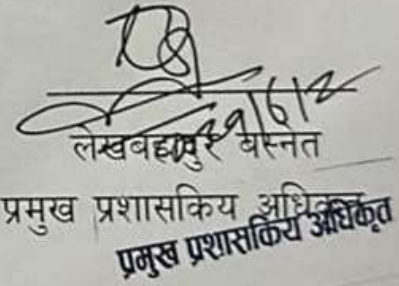 लेखबहादुर बस्नेत
प्रमुख प्रशासकिय अधिकृत
प्रमुख प्रशासकिय अधिकृत